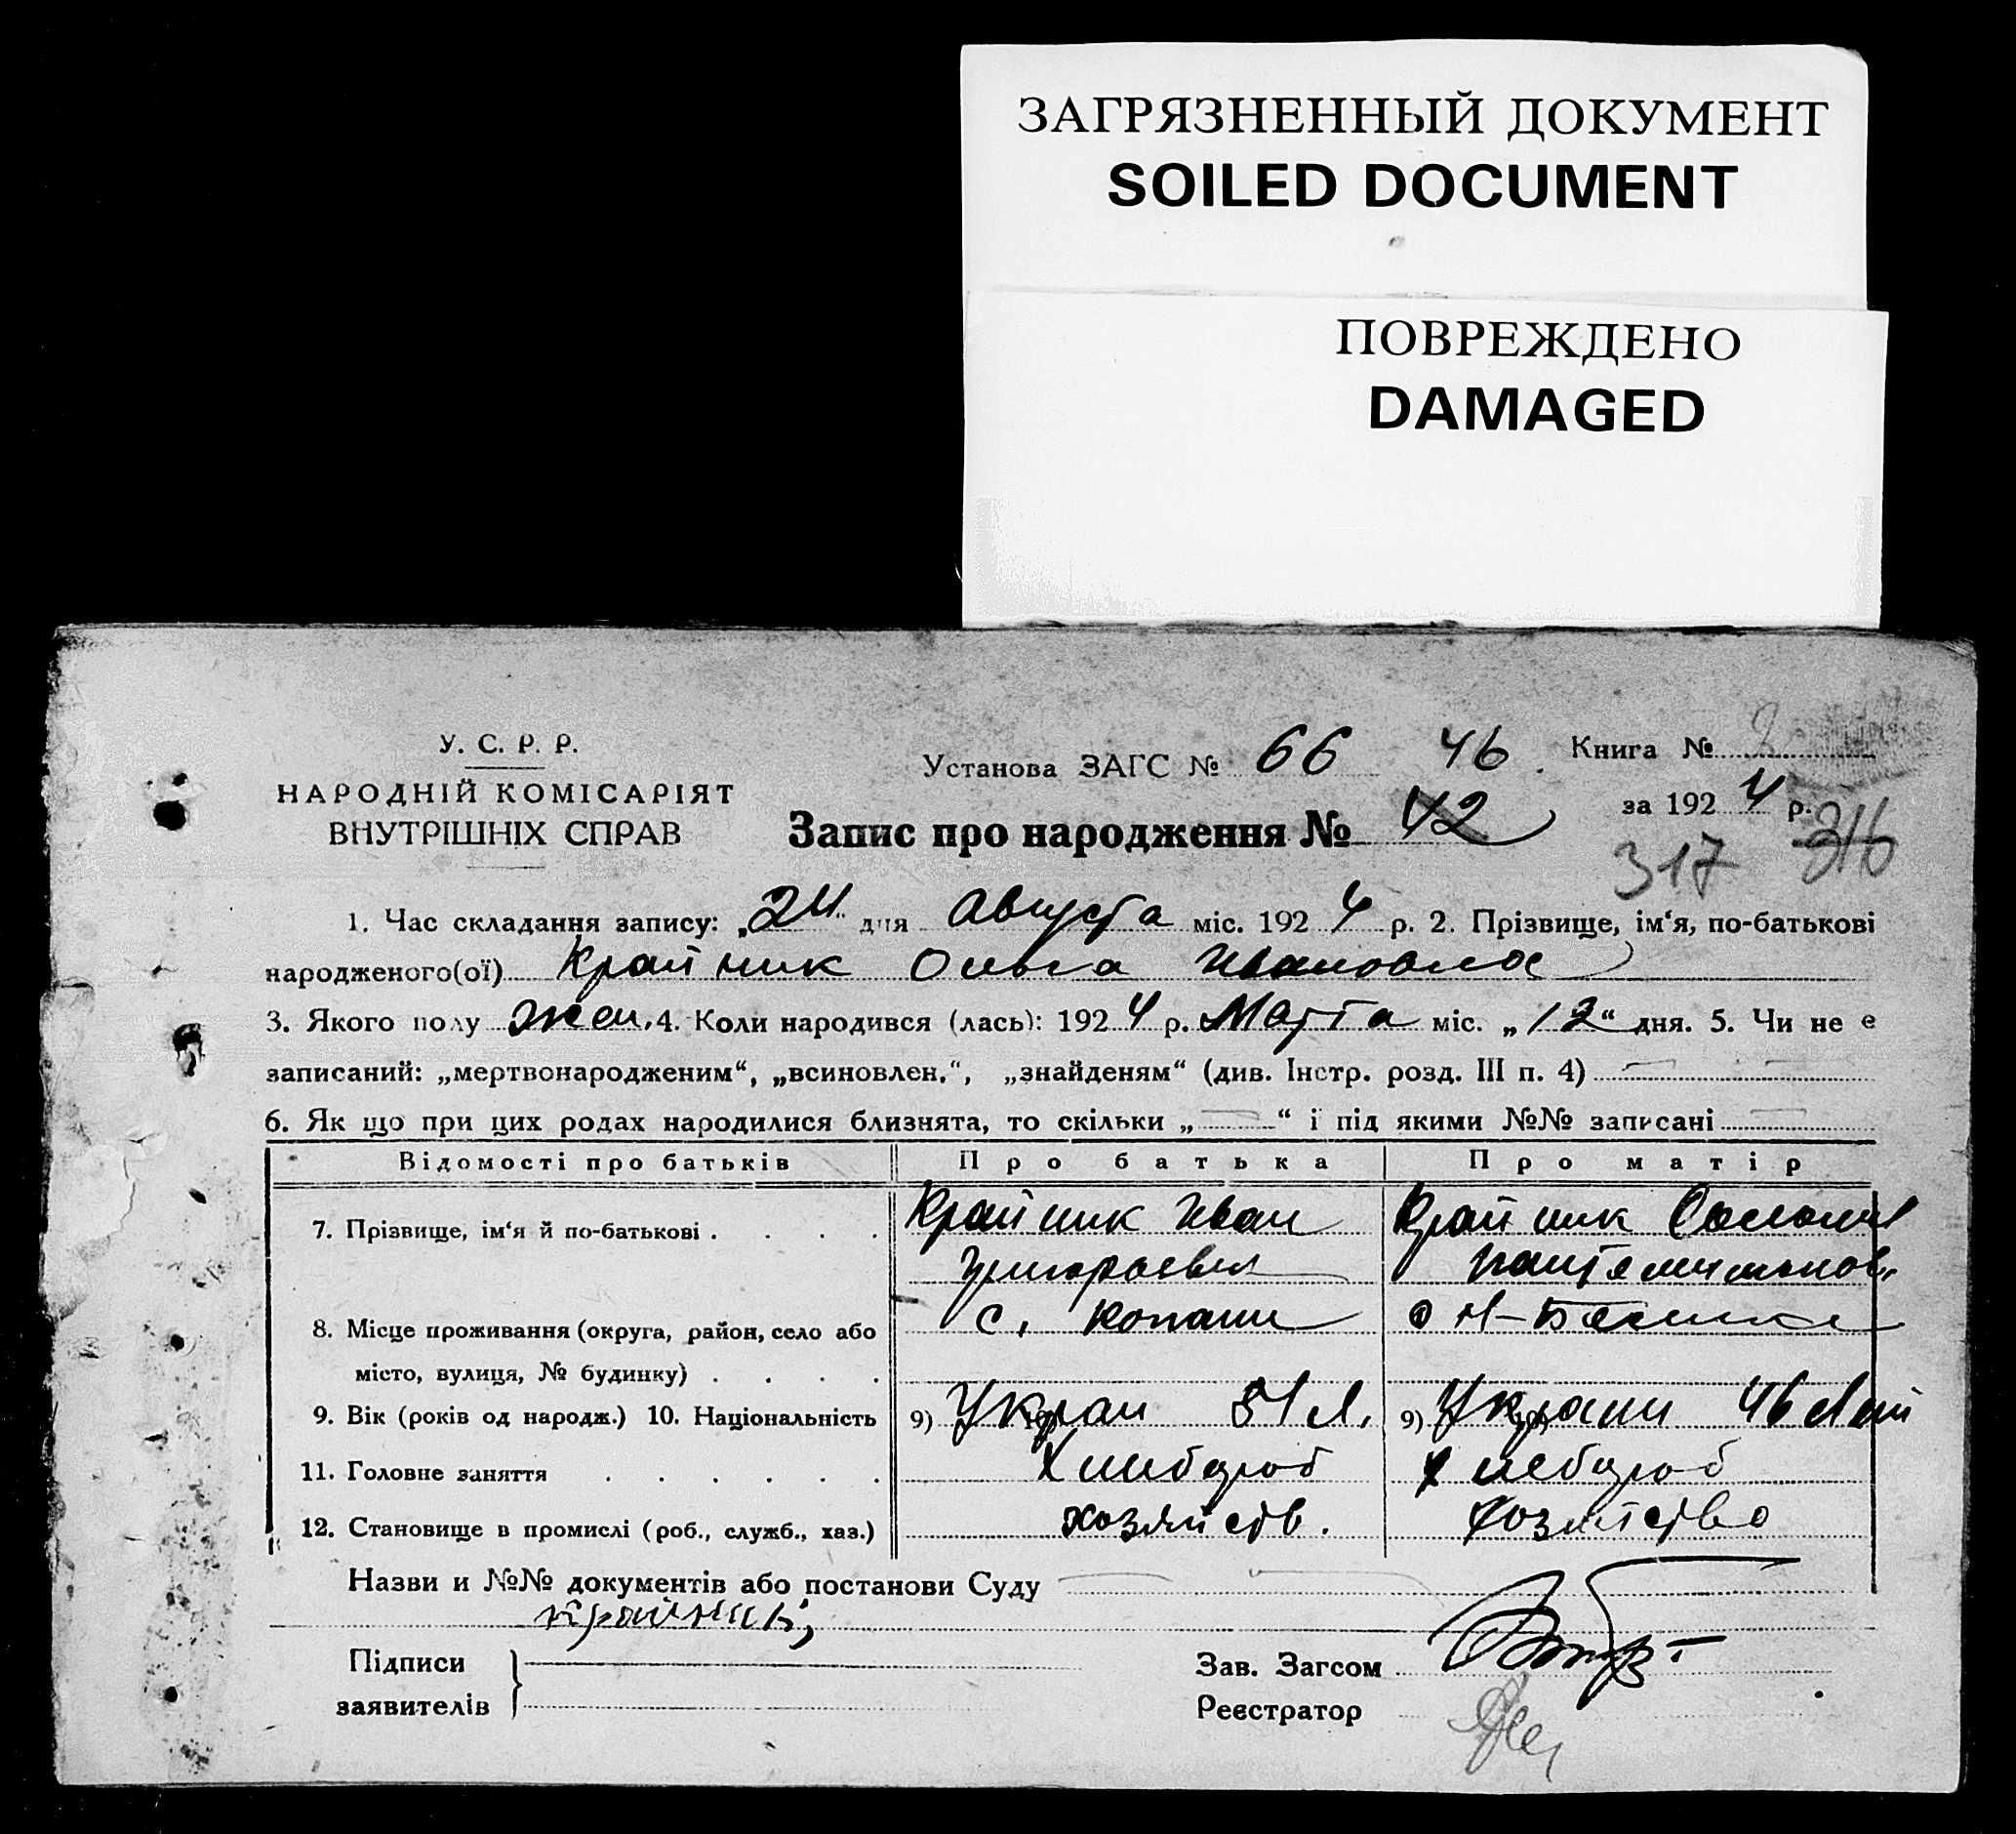 ЗАГРЯЗНЕННЫЙ ДОКУМЕНТ
SOILED DOCUMENT
ПОВРЕЖДЕНО
DAMAGED
У. С. Р. Р.
НАРОДНІЙ КОМІСАРІЯТ
ВНУТРІШНІХ СПРАВ
Установа ЗАГС № 66 46
Книга №
за 1924 р.
Запис про народження № 42
317 316
1. Час складання запису: „24" дня Августа міс. 1924 р. 2. Прізвище, ім‘я, по-батькові
народженого(ої) Крайник Ольга Ивановна
3. Якого полу жен. 4. Коли народився (лась): 1924 р. Марта міс. „12“ дня. 5. Чи не є
записаний: „мертвонародженим“, „всиновлен.“, „знайденям“ (див. Інстр. розд. III п. 4) —
6. Як що при цих родах народилися близнята, то скільки „—“ і під якими №№ записані —
Відомості про батьків Про батька Про матір
7. Прізвище, ім‘я й по-батькові . . . . Крайник Иван Крайник
Григорьевич
8. Місце проживання (округа, район, село або с. Копани
місто, вулиця, № будинку) . . . .
9. Вік (років од народж.) 10. Національність 9) Украи 51 л. 9) Украин 46 лет
11. Головне заняття . . . . . . Хлебороб хлебороб
12. Становище в промислі (роб., служб., хаз.) хозяйств. хозяйство
Назви и №№ документів або постанови Суду —
Крайник
Підписи
заявителів
Зав. Загсом
Реєстратор